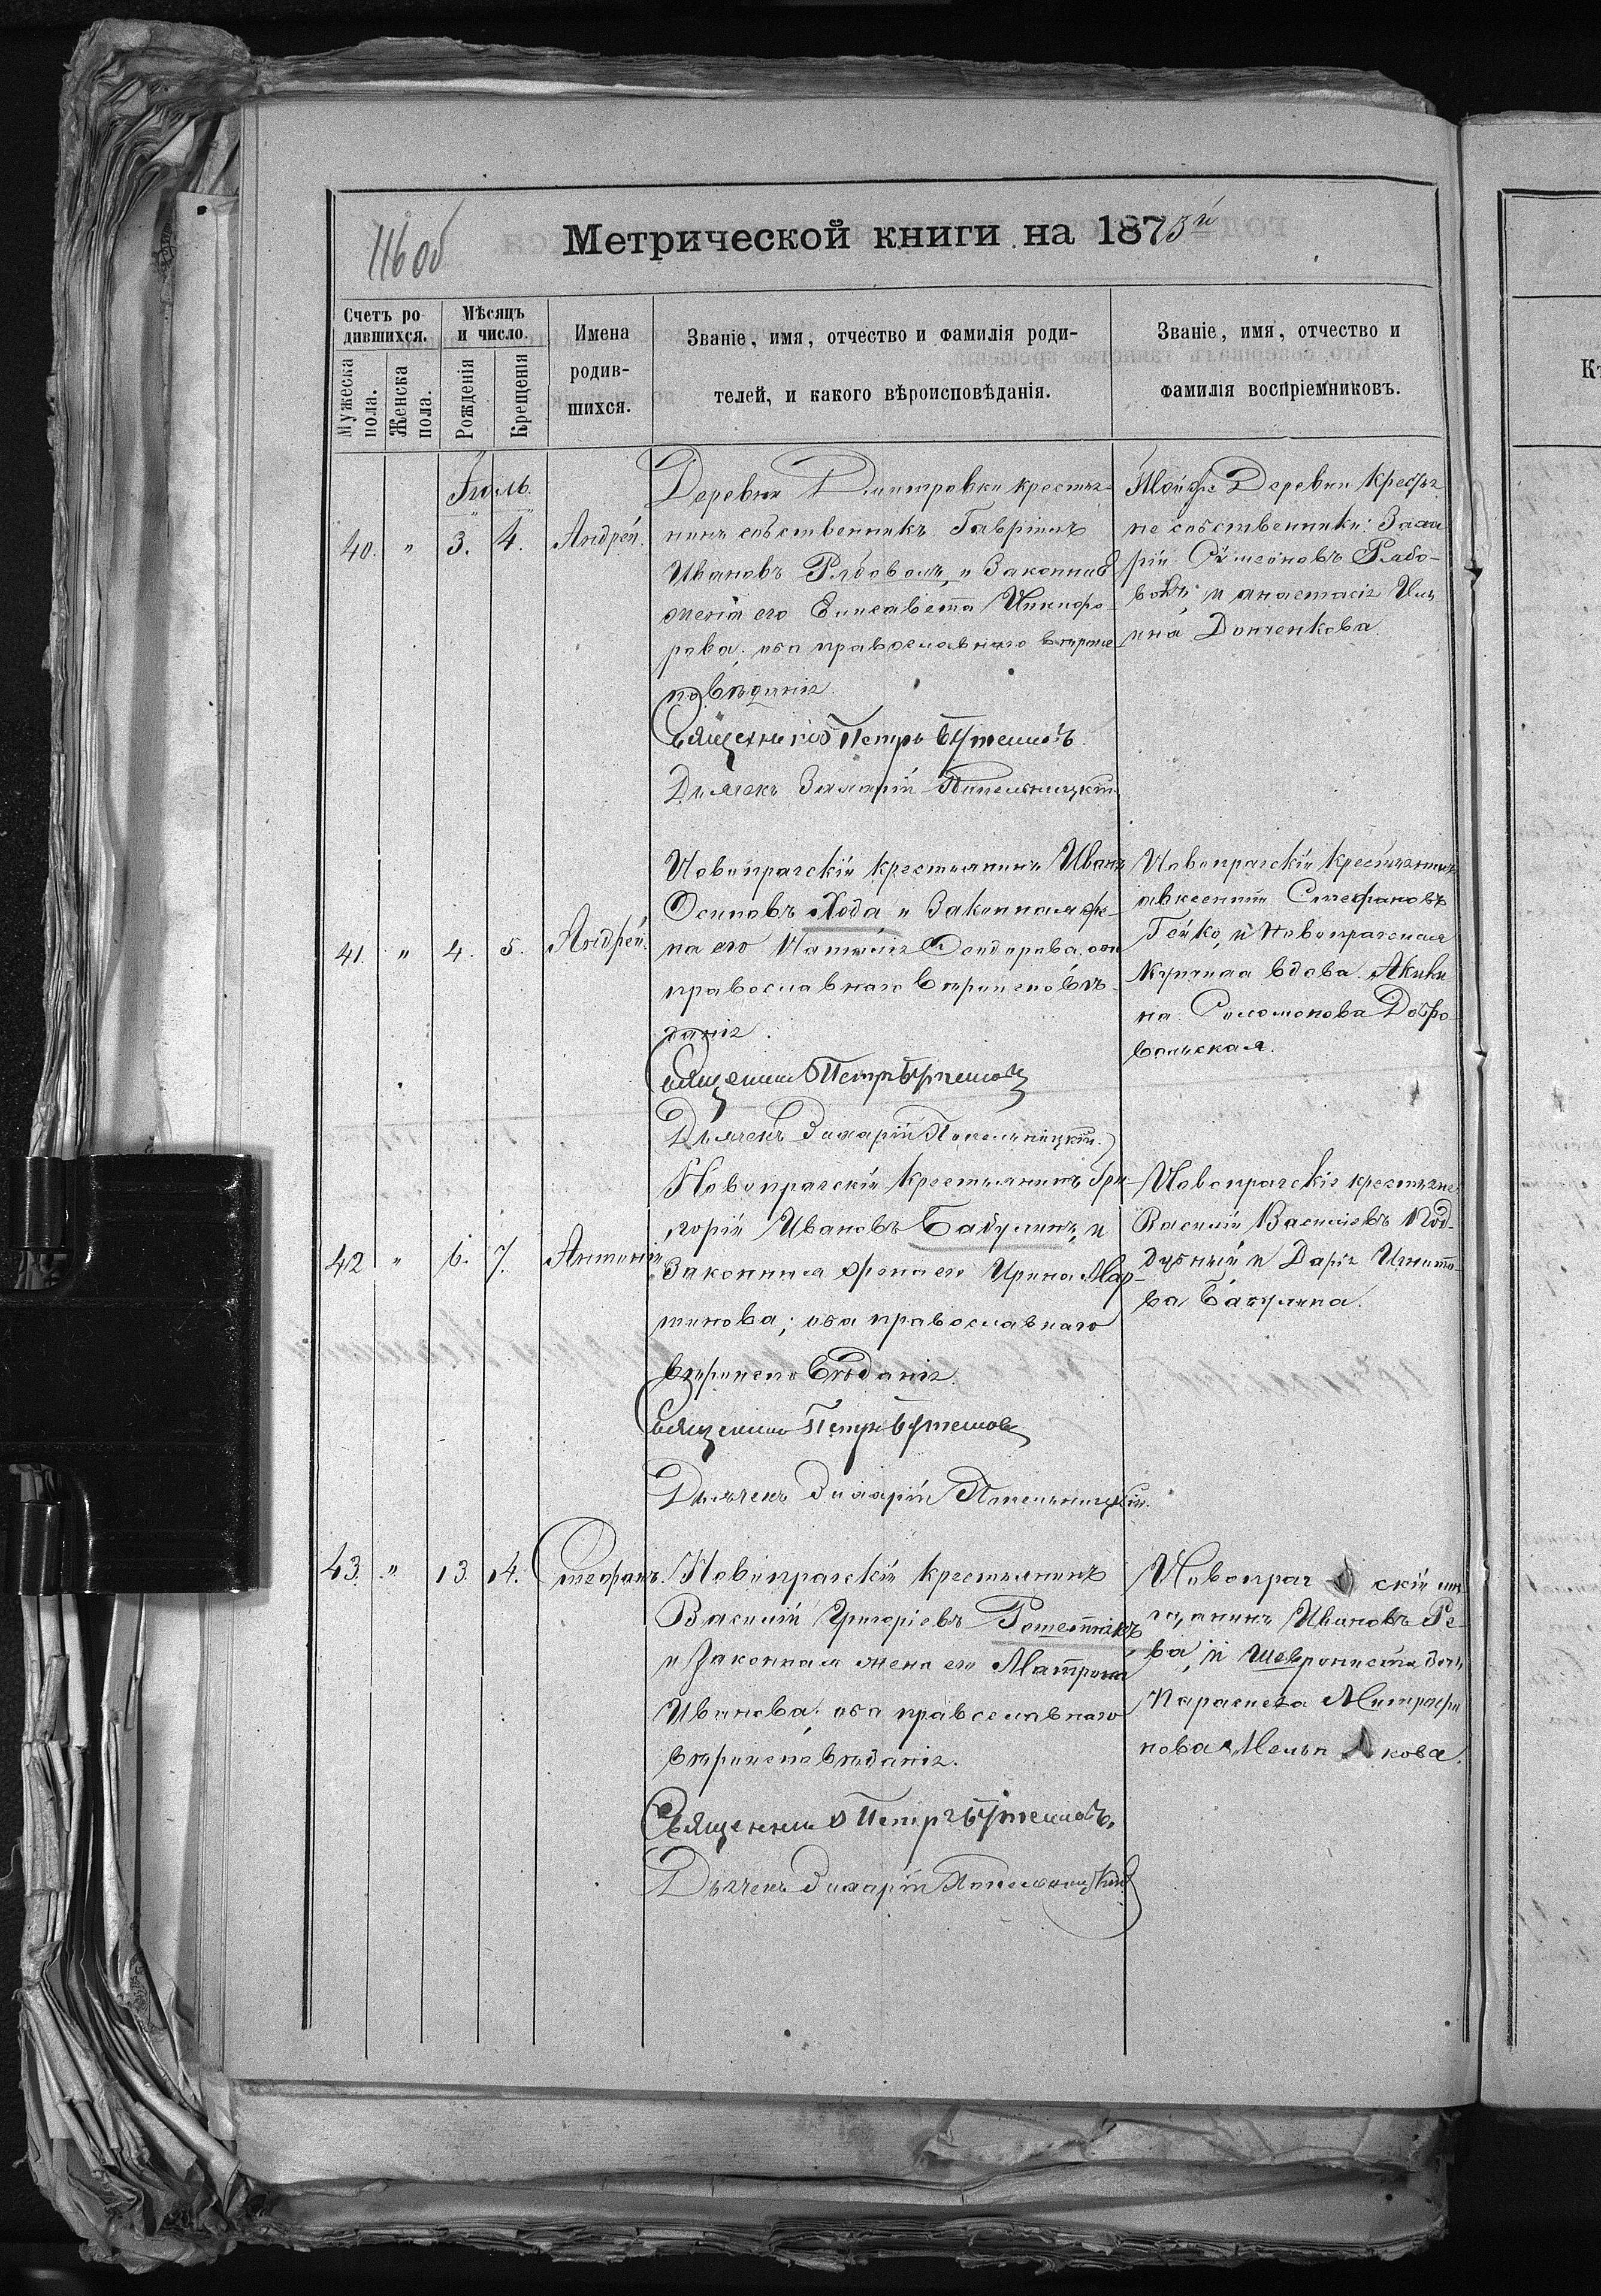 116 об
Метрической книги на 1875й
Счетъ ро-
дившихся.
Мужеска пола.
Женска пола.
Мѣсяцъ
и число.
Рожденія
Крещенія
Имена
родив-
шихся.
Званіе, имя, отчество и фамилія роди-
телей, и какого вѣроисповѣданія.
Званіе, имя, отчество и
фамилія воспріемниковъ.
Іюль.
40. " 3. 4. Андрей.
Деревни Дмитровки крестья-
нинъ собственникъ Гавріилъ
Ивановъ Рядоволъ, и Законная
жена его Елисавета Никифо-
рова; оба православнаго вѣроис-
повѣданія.
Священникъ Петръ
Дьячекъ Захарій
Тойже Деревни Крестья-
не собственники: Заха-
рій Сѵмеоновъ Рядо-
волъ и Анастасія
Донченкова.
41. " 4. 5. Андрей.
Новопражскій крестьянинъ Иванъ
Осиповъ Хода и Законная же-
на его Наталія Феодорова, оба
православнаго вѣроисповѣ-
данія.
Священникъ Петръ
Дьячекъ Захарій
Новопражскій Крестьянинъ
Авксентій Стефановъ
Гейко, и Новопражская
вдова Акили-
на Соломонова Добро-
вольская.
42 " 6. 7. Антоній
Новопражскій Крестьянинъ Гри-
горій Ивановъ Бабулинъ, и
Законная жена его Ирина Мар-
тинова; оба православнаго
вѣроисповѣданія.
Священникъ Петръ
Дьячекъ Захарій
Новопражскіе крестьяне
Василій Васильевъ Под-
дубный и Дарія Игнато-
ва Бабулина.
43. " 13. 14. Стефанъ.
Новопражскій крестьянинъ
Василій Григоріевъ Решетнякъ
и Законная жена его Матрона
Иванова; оба православнаго
вѣроисповѣданія.
Священникъ Петръ
Дьячекъ Захарій
Новопражскій мѣ-
щанинъ Ивановъ Ре-
ва, и
Параскева Митрофа-
нова Мельникова.